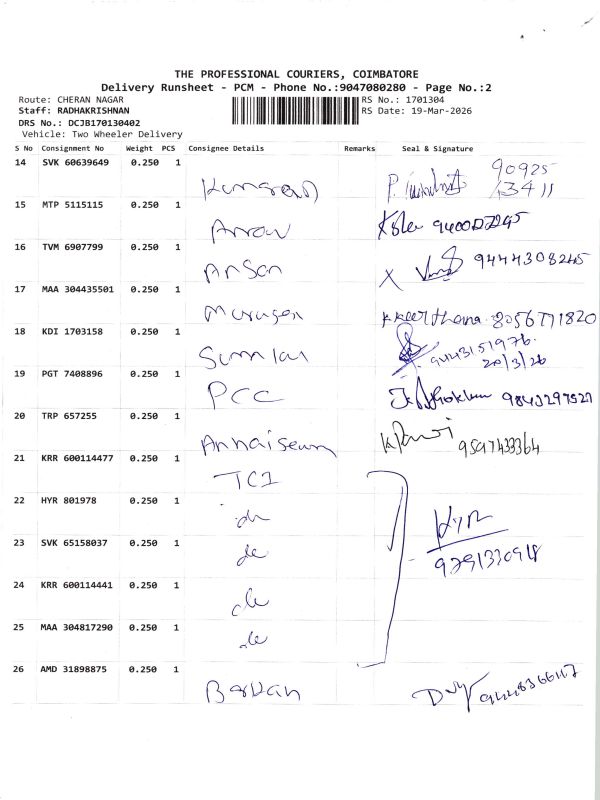 THE PROFESSIONAL COURIERS, COIMBATORE
Delivery Runsheet - PCM - Phone No.:9047080280 - Page No.:2
Route: CHERAN NAGAR RS No.: 1701304
Staff: RADHAKRISHNAN RS Date: 19-Mar-2026
DRS No.: DCJB170130402
Vehicle: Two Wheeler Delivery
S No Consignment No Weight PCS Consignee Details Remarks Seal & Signature
14 SVK 60639649 0.250 1
90925
13411
15 MTP 5115115 0.250 1
Arrow
16 TVM 6907799 0.250 1
Ansan 9444308245
17 MAA 304435501 0.250 1
Murugan Keerthana 8056771820
18 KDI 1703158 0.250 1
9443151976
20/3/26
19 PGT 7408896 0.250 1
PCC 9843297527
20 TRP 657255 0.250 1
9597433364
21 KRR 600114477 0.250 1
TC1
22 HYR 801978 0.250 1
23 SVK 65158037 0.250 1
de
24 KRR 600114441 0.250 1
de
25 MAA 304817290 0.250 1
de
26 AMD 31898875 0.250 1